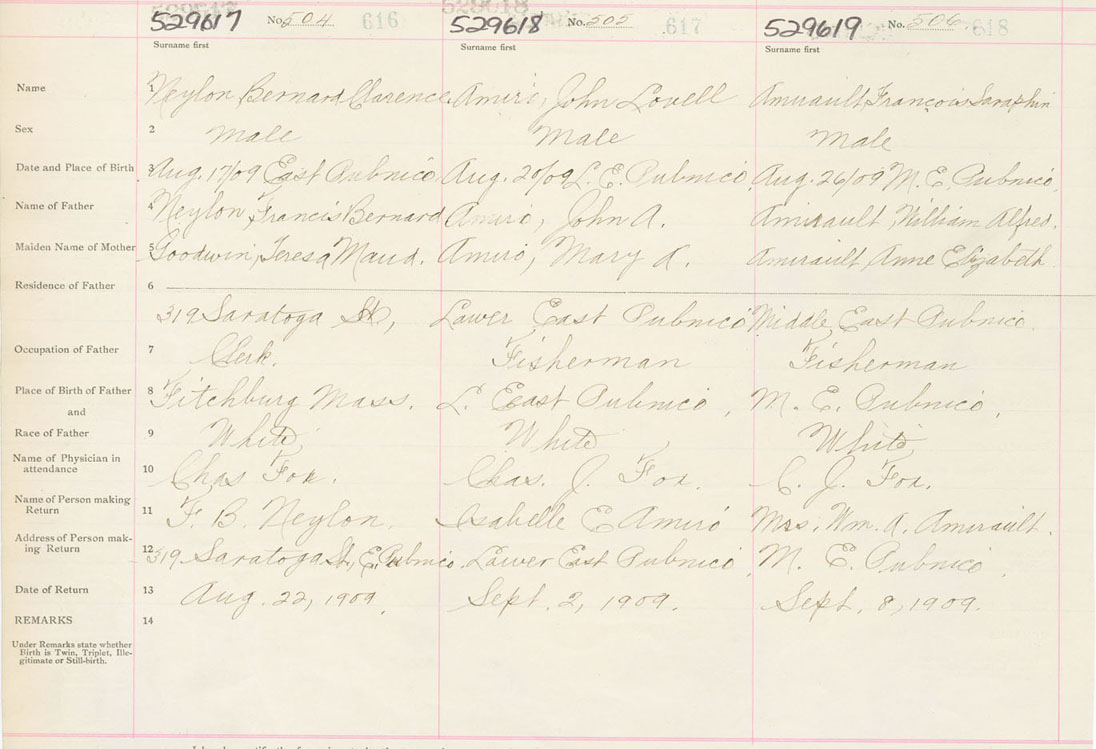 529617 No. 504 616 529618 No. 505 617 529619 No. 506 618
Surname first Surname first Surname first
Name 1 Neylon Bernard Clarence Amiro, John Lovell Amirault François Saraphin
Sex 2 Male Male Male
Date and Place of Birth 3 Aug. 17/09 East Pubnico Aug. 20/09 L. E. Pubnico Aug. 26/09 M. E. Pubnico
Name of Father 4 Neylon Francis Bernard Amiro, John A. Amirault, William Alfred.
Maiden Name of Mother 5 Goodwin, Teresa Maud. Amiro, Mary A. Amirault Anne Elizabeth
Residence of Father 6
319 Saratoga St, Lower East Pubnico Middle East Pubnico
Occupation of Father 7 Clerk. Fisherman Fisherman
Place of Birth of Father 8 Fitchburg Mass. L. East Pubnico, M. E. Pubnico,
and
Race of Father 9 White White White
Name of Physician in
attendance 10 Chas Fox. Chas. J. Fox. C. J. Fox.
Name of Person making
Return 11 F. B. Neylon. Isabelle E Amiro Mrs. Wm. A. Amirault.
Address of Person mak-
ing Return 12 319 Saratoga St, E. Pubnico Lower East Pubnico M. E. Pubnico
Date of Return 13 Aug. 22, 1909 Sept. 2, 1909. Sept. 8, 1909.
REMARKS 14
Under Remarks state whether
Birth is Twin, Triplet, Ille-
gitimate or Still-birth.